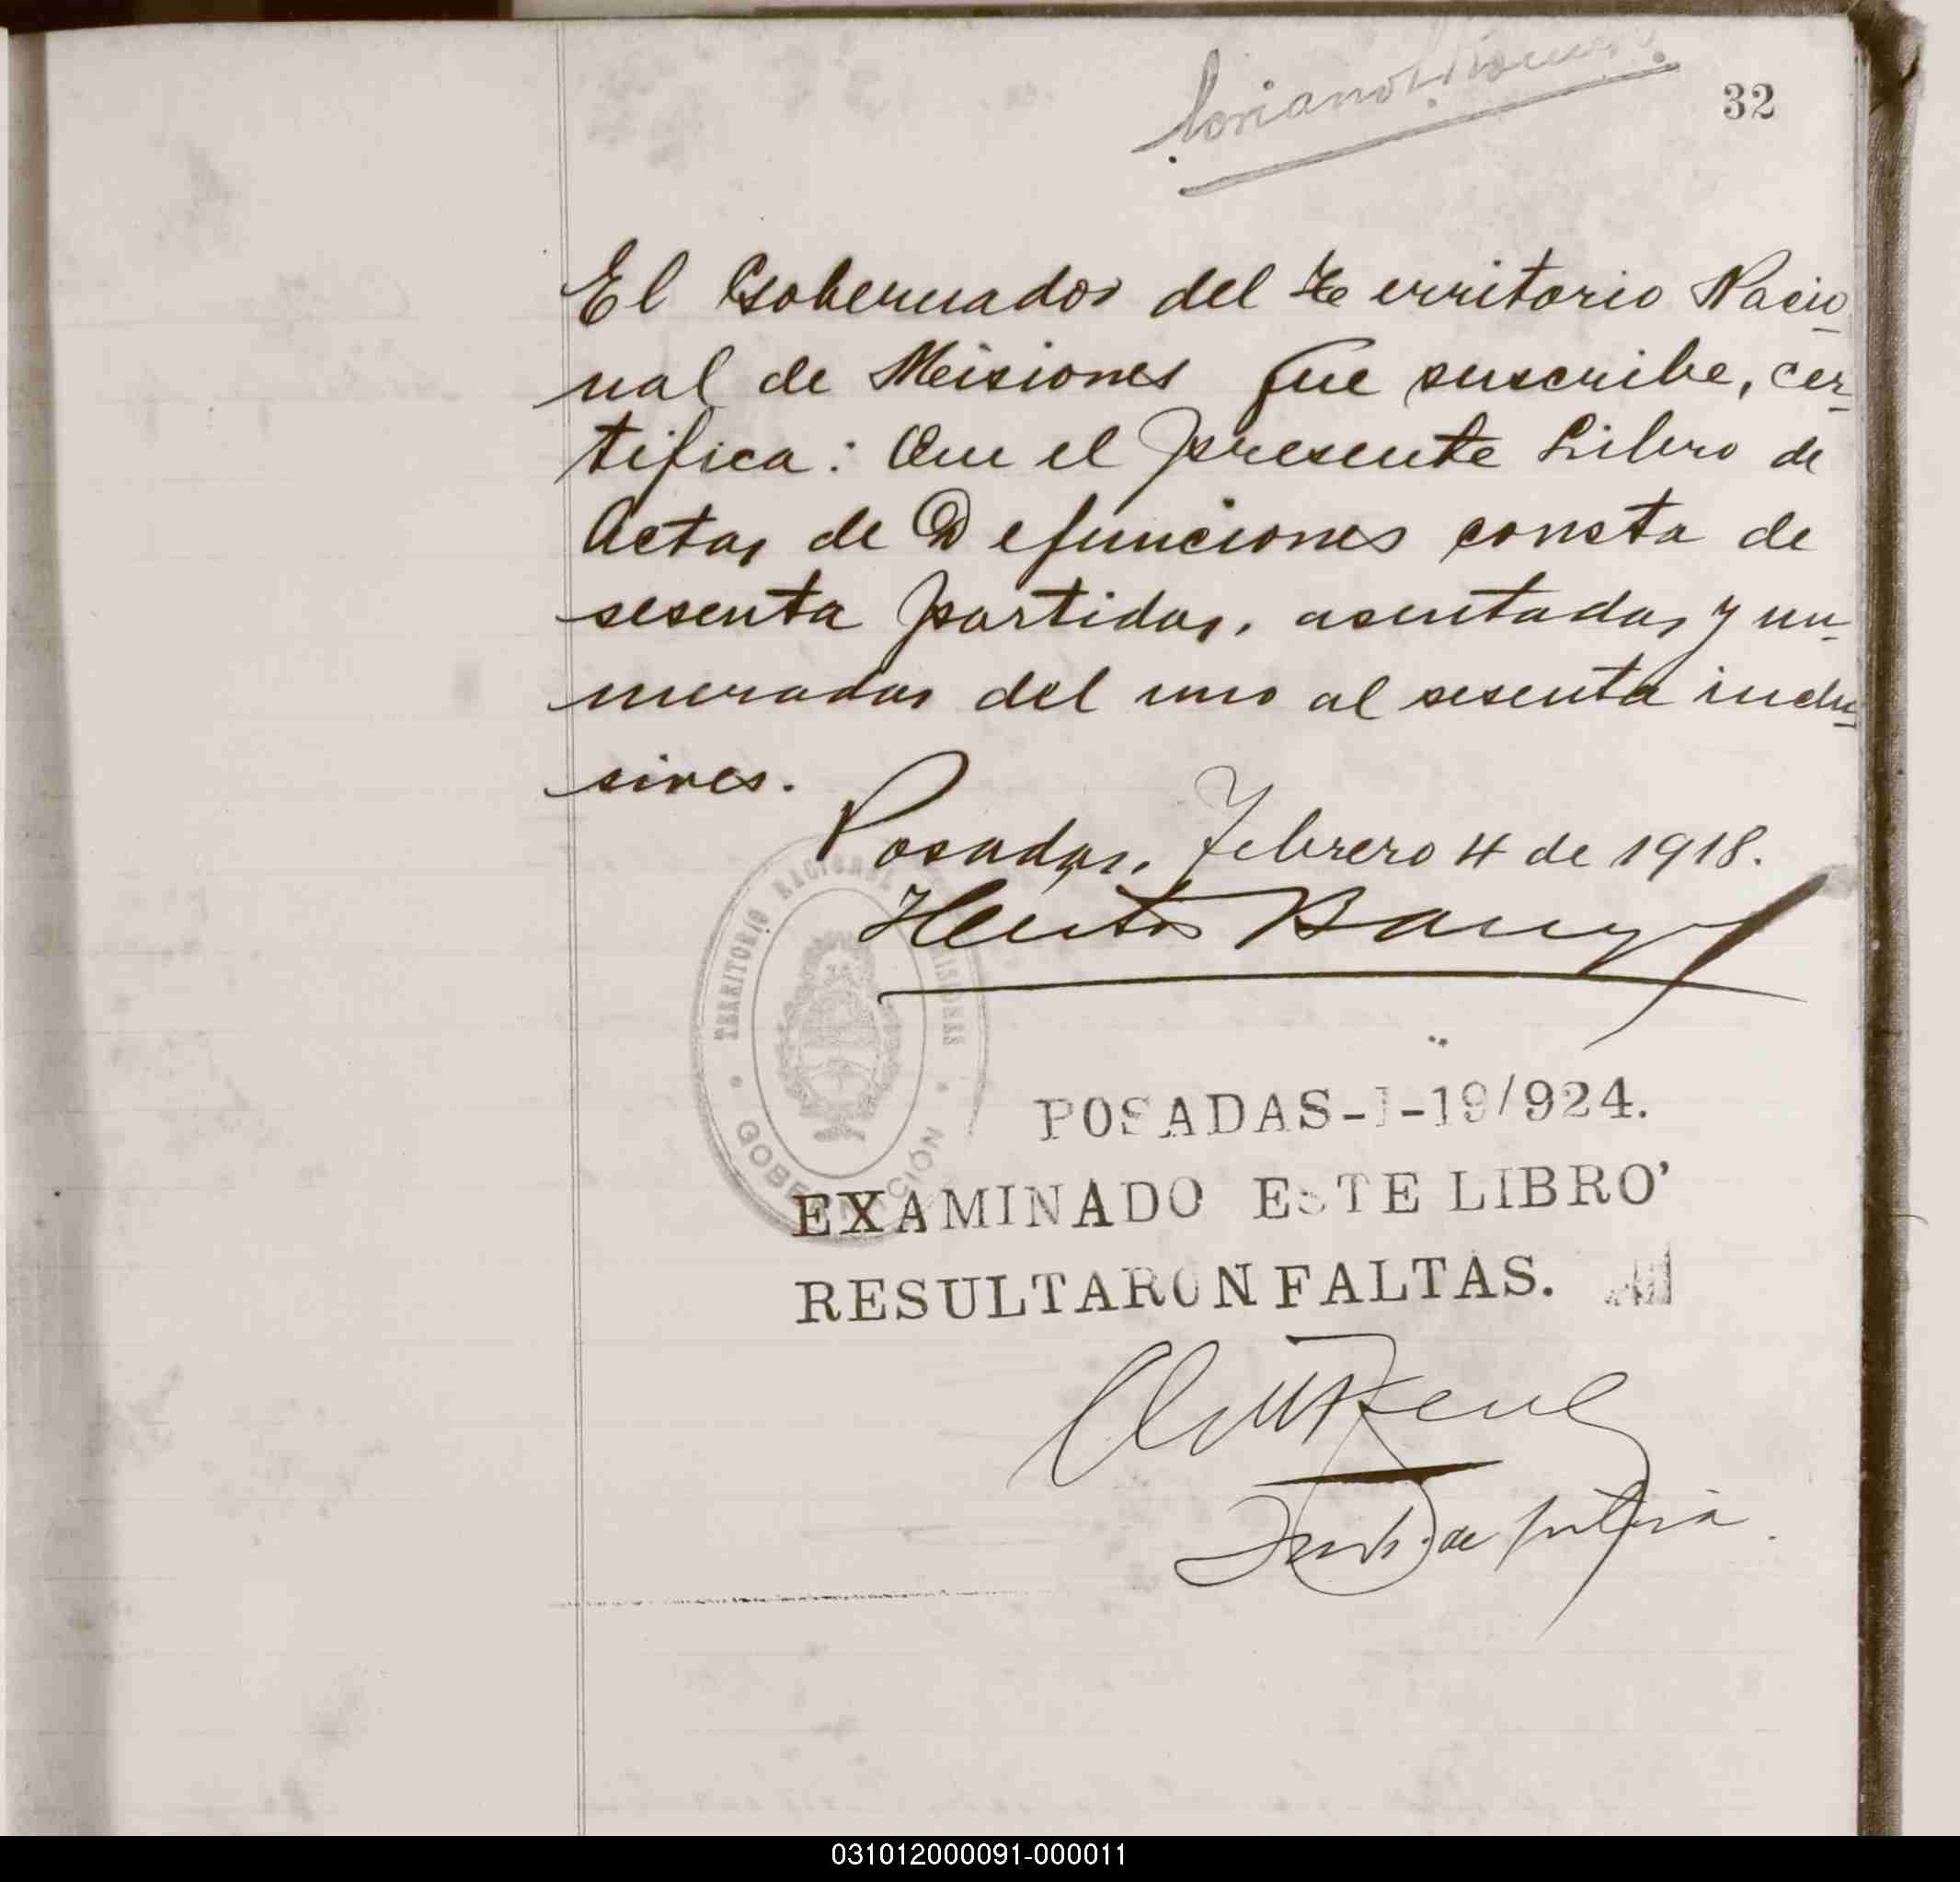 32
El Gobernador del Territorio Nacio-
nal de Misiones que suscribe, cer-
tifica: Que el presente Libro de
Actas de Defunciones consta de
sesenta partidas, asentadas y nu-
meradas del uno al sesenta inclu-
sives.
Posadas, Febrero 4 de 1918.
TERRITORIO NACIONAL MISIONES
GOBERNACIÓN
POSADAS-I-19/924.
EXAMINADO ESTE LIBRO
RESULTARON FALTAS.
de
031012000091-000011